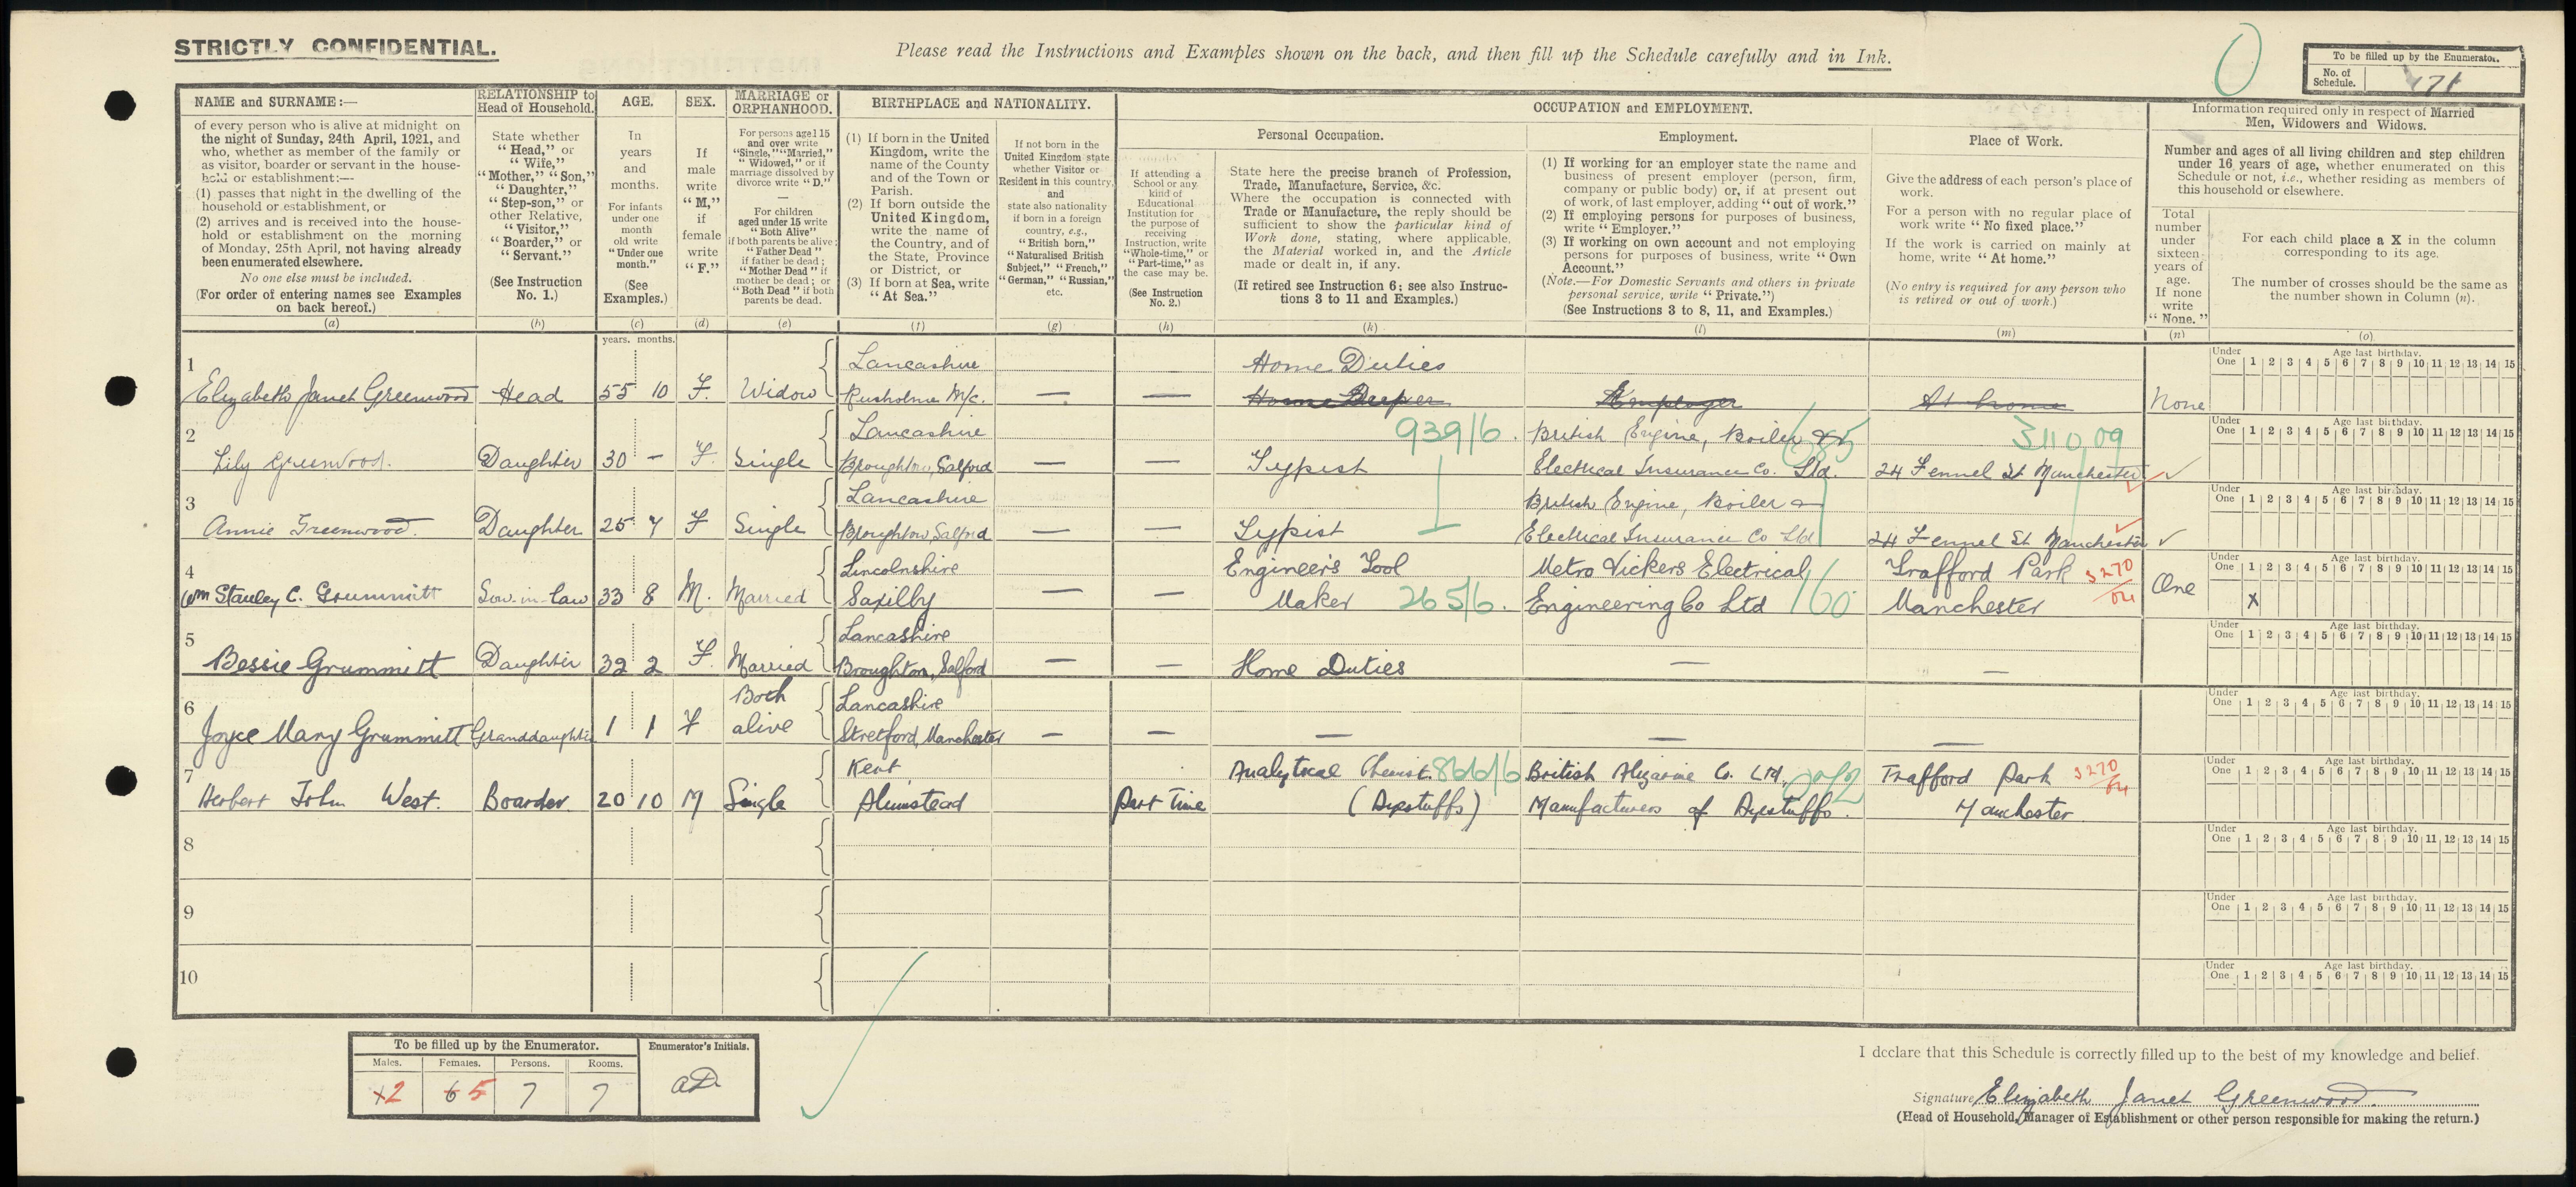 STRICTLY CONFIDENTIAL.
Please read the Instructions and Examples shown on the back, and then fill up the Schedule carefully and in Ink.
To be filled up by the Enumerator.
No. of Schedule.
NAME and SURNAME:—
of every person who is alive at midnight on
the night of Sunday, 24th April, 1921, and
who, whether as member of the family or
as visitor, boarder or servant in the house-
hold or establishment:—
(1) passes that night in the dwelling of the
household or establishment, or
(2) arrives and is received into the house-
hold or establishment on the morning
of Monday, 25th April, not having already
been enumerated elsewhere.
No one else must be included.
(For order of entering names see Examples
on back hereof.)
(a)
RELATIONSHIP to
Head of Household.
State whether
"Head," or
"Wife,"
"Mother," "Son,"
"Daughter,"
"Step-son," or
other Relative,
"Visitor,"
"Boarder," or
"Servant."
(See Instruction
No. 1.)
(b)
AGE.
In
years
and
months.
For infants
under one
month
old write
"Under one
month."
(See
Examples.)
(c)
SEX.
If
male
write
"M,"
if
female
write
"F."
(d)
MARRIAGE or
ORPHANHOOD.
For persons aged 15
and over write
"Single," "Married,"
"Widowed," or if
marriage dissolved by
divorce write "D."
For children
aged under 15 write
"Both Alive"
if both parents be alive;
"Father Dead"
if father be dead;
"Mother Dead" if
mother be dead; or
"Both Dead" if both
parents be dead.
(e)
BIRTHPLACE and NATIONALITY.
(1) If born in the United
Kingdom, write the
name of the County
and of the Town or
Parish.
(2) If born outside the
United Kingdom,
write the name of
the Country, and of
the State, Province
or District, or
(3) If born at Sea, write
"At Sea."
(f)
If not born in the
United Kingdom state
whether Visitor or
Resident in this country,
and
state also nationality
if born in a foreign
country, e.g.,
"British born,"
"Naturalised British
Subject," "French,"
"German," "Russian,"
etc.
(g)
OCCUPATION and EMPLOYMENT.
If attending a
School or any
kind of
Educational
Institution for
the purpose of
receiving
Instruction, write
"Whole-time," or
"Part-time," as
the case may be.
(See Instruction
No. 2.)
(h)
Personal Occupation.
State here the precise branch of Profession,
Trade, Manufacture, Service, &c.
Where the occupation is connected with
Trade or Manufacture, the reply should be
sufficient to show the particular kind of
Work done, stating, where applicable,
the Material worked in, and the Article
made or dealt in, if any.
(If retired see Instruction 6; see also Instruc-
tions 3 to 11 and Examples.)
(k)
Employment.
(1) If working for an employer state the name and
business of present employer (person, firm,
company or public body) or, if at present out
of work, of last employer, adding "out of work."
(2) If employing persons for purposes of business,
write "Employer."
(3) If working on own account and not employing
persons for purposes of business, write "Own
Account."
(Note.—For Domestic Servants and others in private
personal service, write "Private.")
(See Instructions 3 to 8, 11, and Examples.)
(l)
Place of Work.
Give the address of each person's place of
work.
For a person with no regular place of
work write "No fixed place."
If the work is carried on mainly at
home, write "At home."
(No entry is required for any person who
is retired or out of work.)
(m)
Information required only in respect of Married
Men, Widowers and Widows.
Number and ages of all living children and step children
under 16 years of age, whether enumerated on this
Schedule or not, i.e., whether residing as members of
this household or elsewhere.
Total
number
under
sixteen
years of
age.
If none
write
"None."
(n)
For each child place a X in the column
corresponding to its age.
The number of crosses should be the same as
the number shown in Column (n).
(o)
years. months.
1 Elizabeth Janet Greenwood Head 55 10 F. Widow Lancashire Rusholme M/c. — — Home Duties
Home Keeper Employer At home None
Under One Age last birthday. 1 2 3 4 5 6 7 8 9 10 11 12 13 14 15
2 Lily Greenwood. Daughter 30 — F. Single Lancashire Broughton, Salford — — Typist 939/6. British Engine, Boiler & Electrical Insurance Co. Ltd. 685 24 Fennel St Manchester 311009
Under One Age last birthday. 1 2 3 4 5 6 7 8 9 10 11 12 13 14 15
3 Annie Greenwood. Daughter 25 7 F Single Lancashire Broughton, Salford — — Typist British Engine, Boiler & Electrical Insurance Co Ltd 24 Fennel St Manchester
Under One Age last birthday. 1 2 3 4 5 6 7 8 9 10 11 12 13 14 15
4 Wm Stanley C. Grummitt Son-in-law 33 8 M. Married Lincolnshire Saxilby — — Engineer's Tool Maker 265/6. Metro Vickers Electrical Engineering Co Ltd 160 Trafford Park Manchester 3270/04 One
Under One Age last birthday. 1 2 3 4 5 6 7 8 9 10 11 12 13 14 15
X
5 Bessie Grummitt Daughter 32 2 F. Married Lancashire Broughton, Salford — — Home Duties — —
Under One Age last birthday. 1 2 3 4 5 6 7 8 9 10 11 12 13 14 15
6 Joyce Mary Grummitt Granddaughter 1 1 F Both alive Lancashire Stretford, Manchester — — — — —
Under One Age last birthday. 1 2 3 4 5 6 7 8 9 10 11 12 13 14 15
7 Herbert John West. Boarder. 20 10 M Single Kent Plumstead Part Time Analytical Chemist (Dyestuffs) 866/6 British Alizarine Co. Ltd. Manufacturers of Dyestuffs. Trafford Park Manchester 3270/04
Under One Age last birthday. 1 2 3 4 5 6 7 8 9 10 11 12 13 14 15
8
Under One Age last birthday. 1 2 3 4 5 6 7 8 9 10 11 12 13 14 15
9
Under One Age last birthday. 1 2 3 4 5 6 7 8 9 10 11 12 13 14 15
10
Under One Age last birthday. 1 2 3 4 5 6 7 8 9 10 11 12 13 14 15
To be filled up by the Enumerator.
Males. Females. Persons. Rooms.
2 6 5 7 7
Enumerator's Initials.
I declare that this Schedule is correctly filled up to the best of my knowledge and belief.
Signature Elizabeth Janet Greenwood
(Head of Household, Manager of Establishment or other person responsible for making the return.)